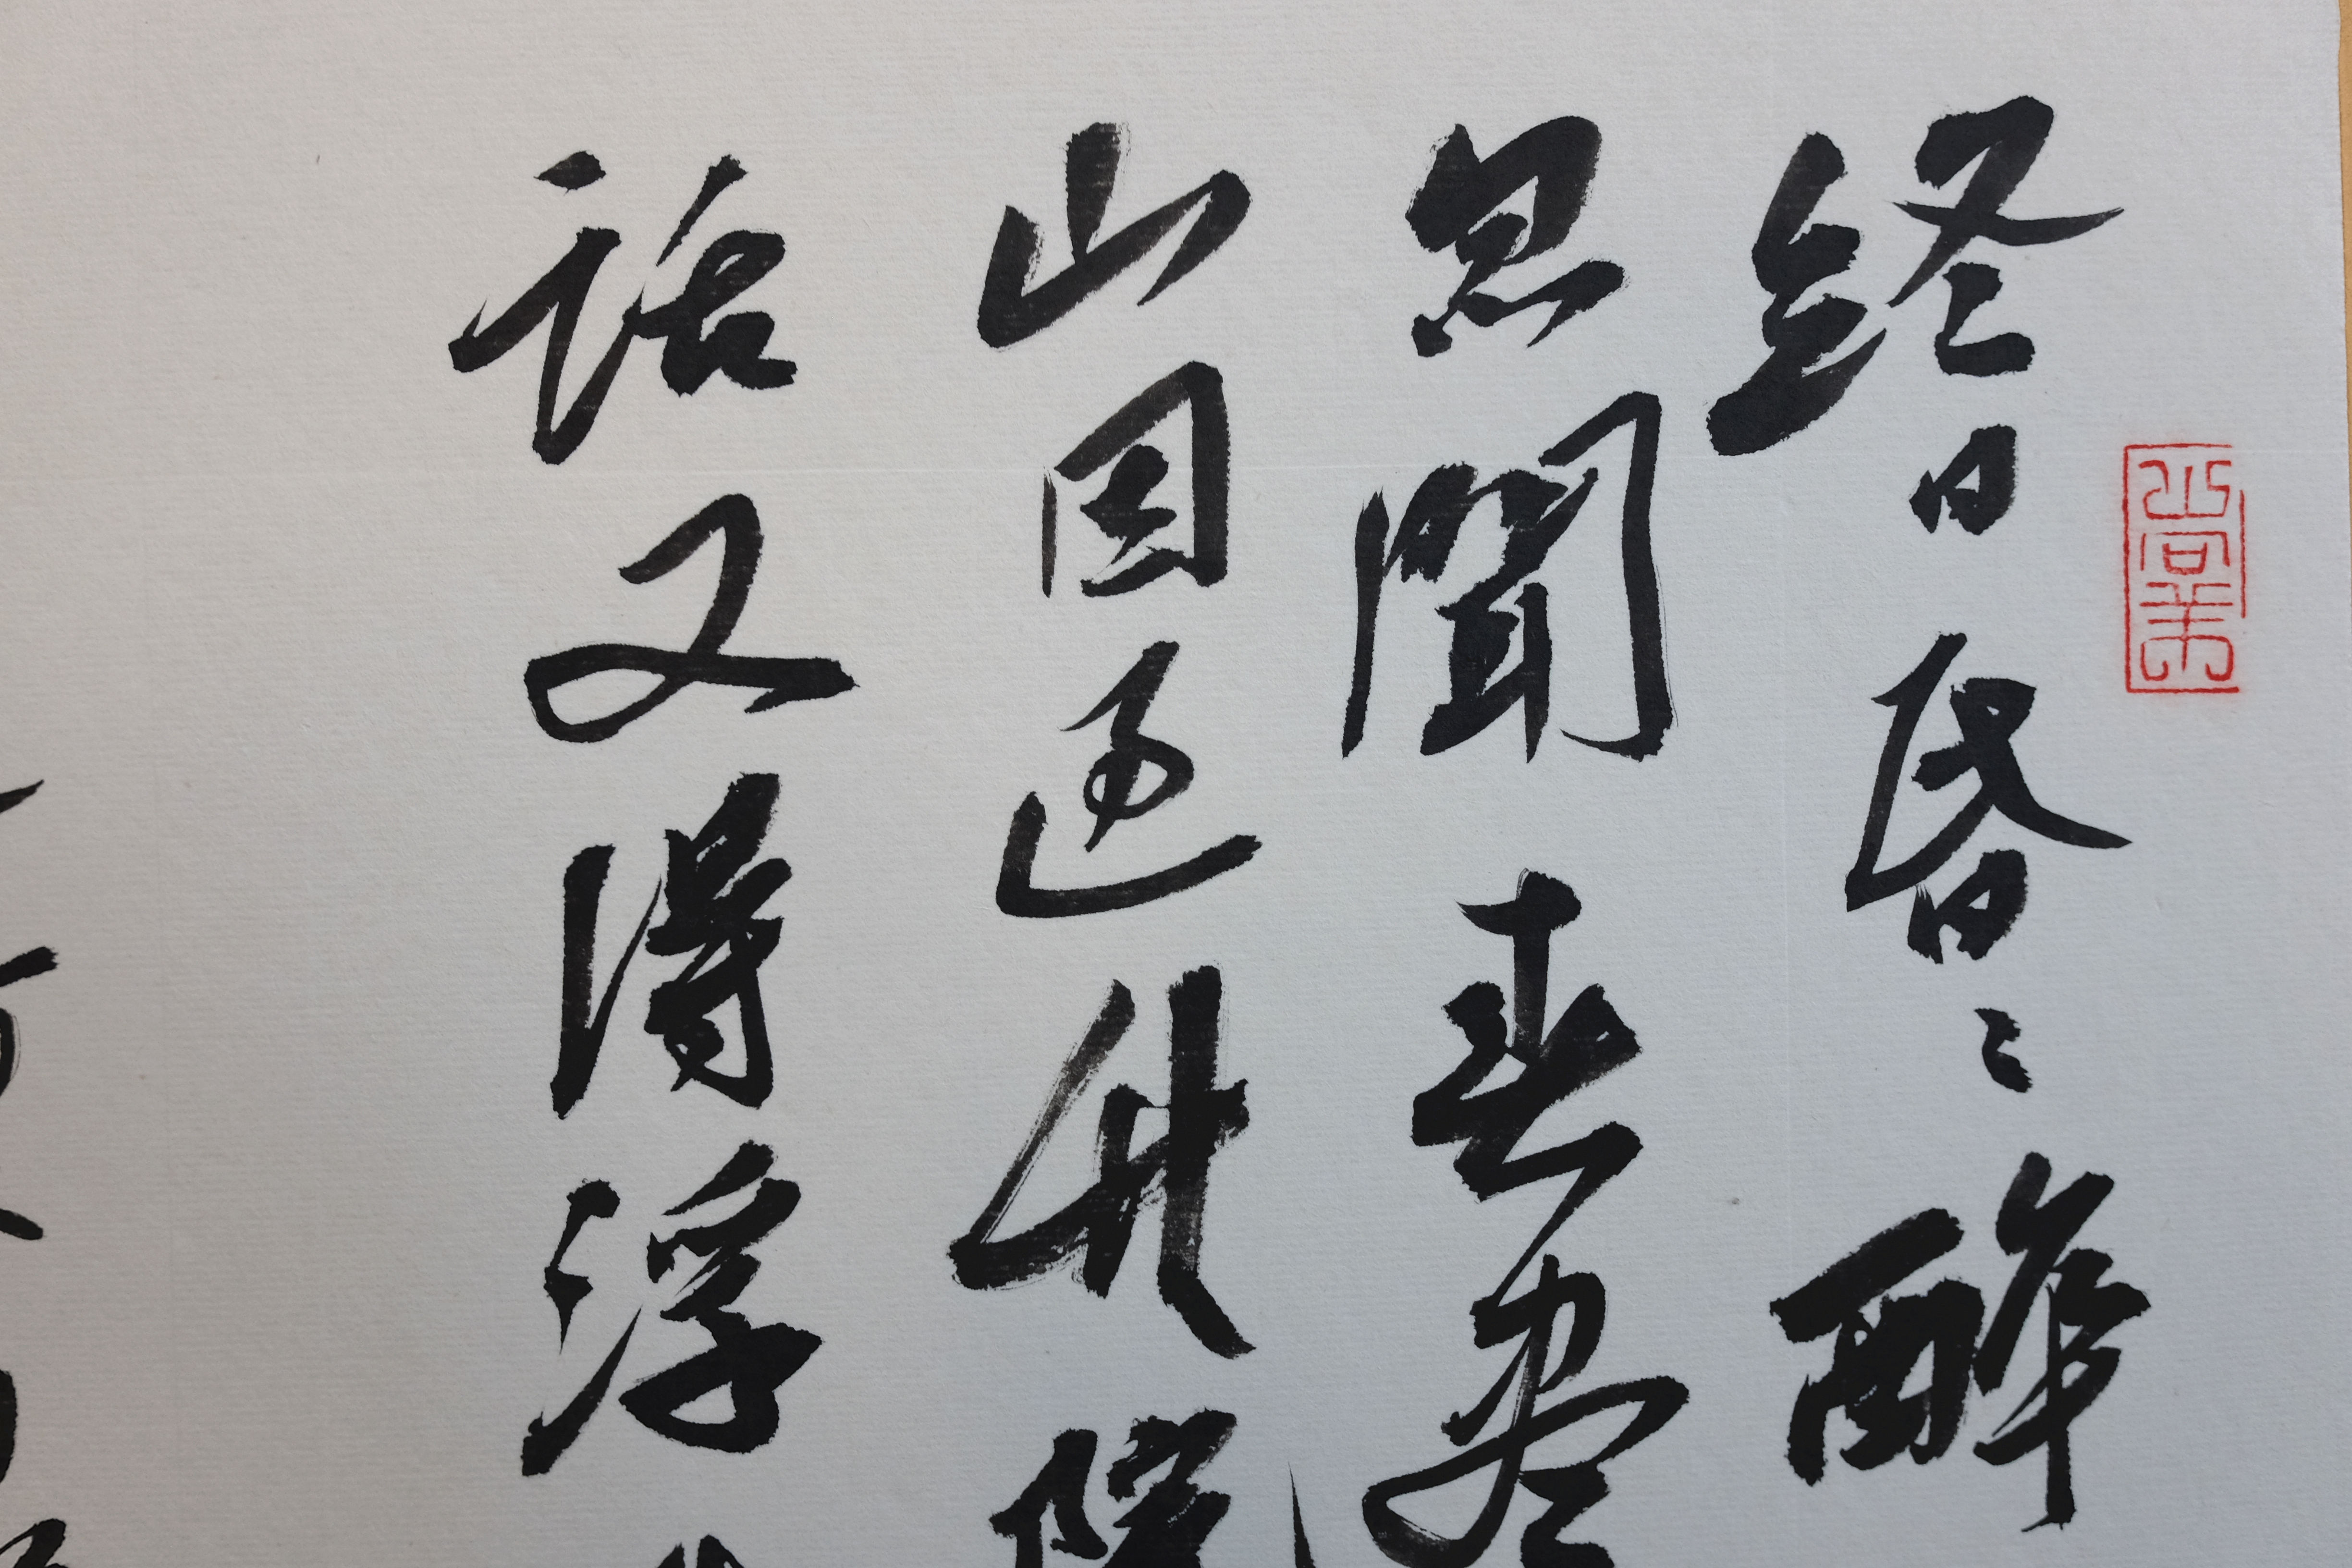 終日昏〻醉
忽聞春尽
山因過竹院
話又得浮